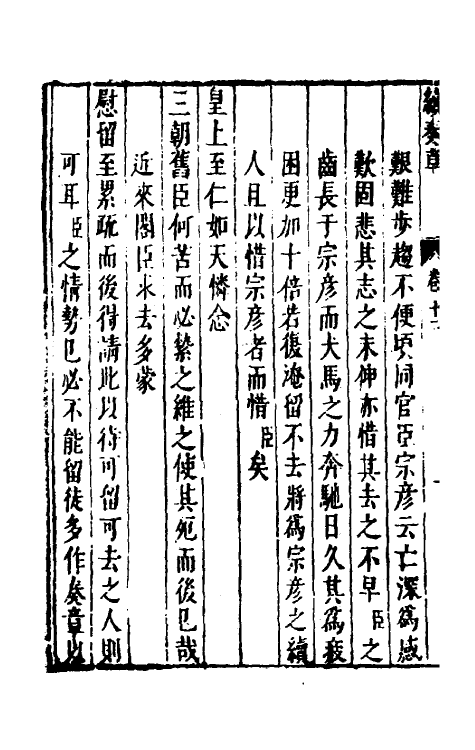 續奏草 卷十二
艱難步趨不便頃同官臣宗彦云亡深爲感
歎固悲其志之未伸亦惜其去之不早臣之
齒長于宗彦而犬馬之力奔馳日久其爲疲
困更加十倍若復淹留不去將爲宗彦之續
人且以惜宗彦者而惜臣矣
皇上至仁如天憐念
三朝舊臣何苦而必縶之維之使其死而後已哉
近來閣臣求去多蒙
慰留至累疏而後得請此以待可留可去之人則
可耳臣之情勢已必不能留徒多作奏章以